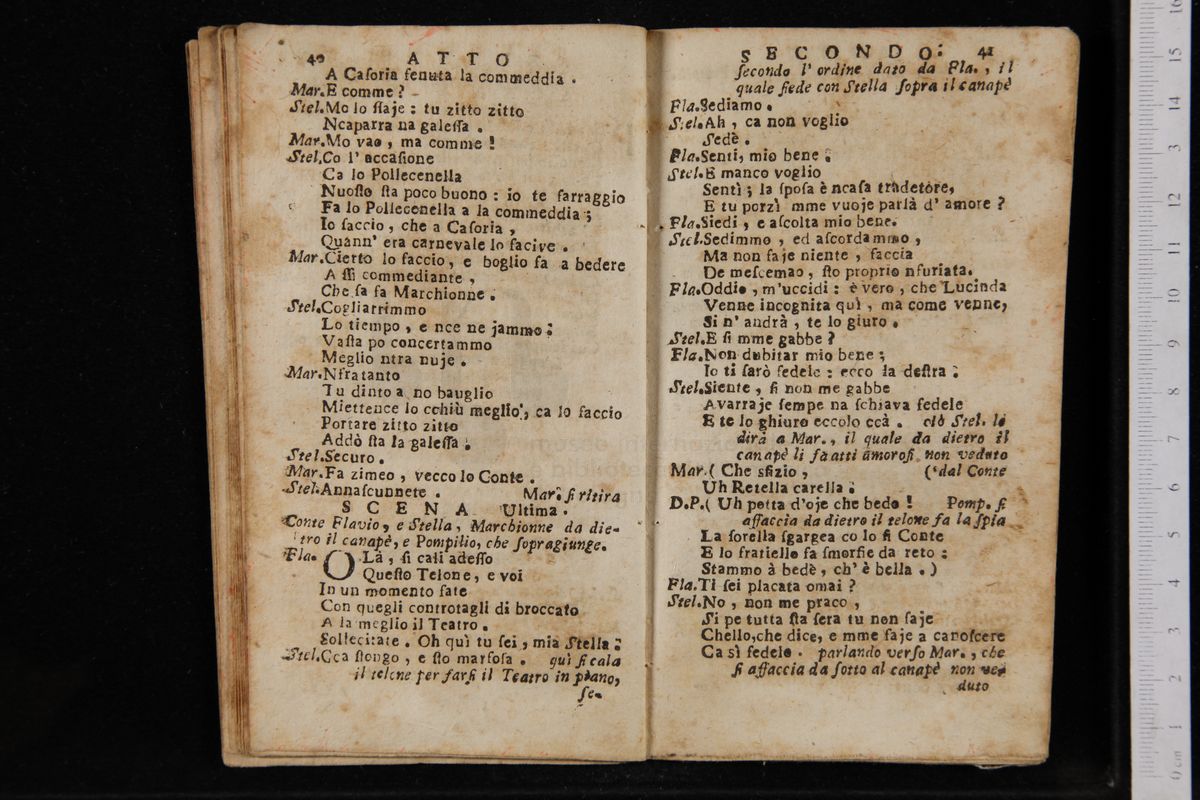 40 ATTO
A Casoria senuta la commeddia .
Mar.E comme ?
Stel.Mo lo ssaje : tu zitto zitto
Ncaparra na galessa .
Mar.Mo vao , ma comme !
Stel.Co l' accasione
Ca lo Pollecenella
Nuosto sta poco buono : io te farraggio
Fa lo Pollecenella a la commeddia ;
Io saccio , che a Casoria ,
Quann' era carnevale lo facive .
Mar.Cierto lo faccio , e boglio fa a bedere
A ssi commediante ,
Che sa fa Marchionne .
Stel.Cogliarrimmo
Lo tiempo , e nce ne jammo :
Vasta po concertammo
Meglio ntra nuje .
Mar.Nfratanto
Tu dinto a no bauglio
Miettence lo cchiù meglio, ca lo faccio
Portare zitto zitto
Addò sta la galessa .
Stel.Securo .
Mar.Fa zimeo , vecco lo Conte .
Stel.Annascunnete . Mar. si ritira
SCENA Ultima .
Conte Flavio, e Stella, Marchionne da die-
tro il canapè, e Pompilio, che sopragiunge.
Fla. OLà , si cali adesso
Questo Telone, e voi
In un momento fate
Con quegli controtagli di broccato
A la meglio il Teatro .
Sollecitate . Oh quì tu sei , mia Stella :
Stel.Cca stongo , e sto marfosa . quì si cala
il telone per farsi il Teatro in piano,
se-
SECONDO. 41
secondo l' ordine dato da Fla. , il
quale siede con Stella sopra il canapè
Fla.Sediamo .
Stel.Ah , ca non voglio
Sedè .
Fla.Senti, mio bene .
Stel.E manco voglio
Sentì ; la sposa è ncasa tradetore,
E tu porzì mme vuoje parlà d' amore ?
Fla.Siedi , e ascolta mio bene.
Stel.Sedimmo , ed ascordammo ,
Ma non faje niente , faccia
De mescemao , sto proprio nfuriata.
Fla.Oddio , m'uccidi : è vero , che Lucinda
Venne incognita quì , ma come venne,
Si n' andrà , te lo giuro .
Stel.E si mme gabbe ?
Fla.Non dubitar mio bene ;
Io ti sarò fedele : ecco la destra .
Stel.Siente , si non me gabbe
Avarraje sempe na schiava fedele
E te lo ghiuro eccolo ccà . ciò Stel. lo
dirà a Mar., il quale da dietro il
canapè li fa atti amorosi non veduto
Mar.( Che sfizio , (dal Conte
Uh Retella carella .
D.P.( Uh potta d'oje che bedo ! Pomp. si
affaccia da dietro il telone fa la spia
La sorella sgargea co lo si Conte
E lo fratiello fa smorfie da reto :
Stammo à bedè , ch' è bella . )
Fla.Ti sei placata omai ?
Stel.No , non me praco ,
Si pe tutta sta sera tu non faje
Chello,che dice, e mme faje a canoscere
Ca sì fedele . parlando verso Mar. , che
si affaccia da sotto al canapè non ve-
duto